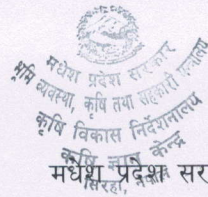 मधेश प्रदेश सरकार
भूमि व्यवस्था, कृषि तथा सहकारी मन्त्रालय
कृषि विकास निर्देशनालय
कृषि ज्ञान केन्द्र
सिरहा, नेपाल
मधेश प्रदेश सर